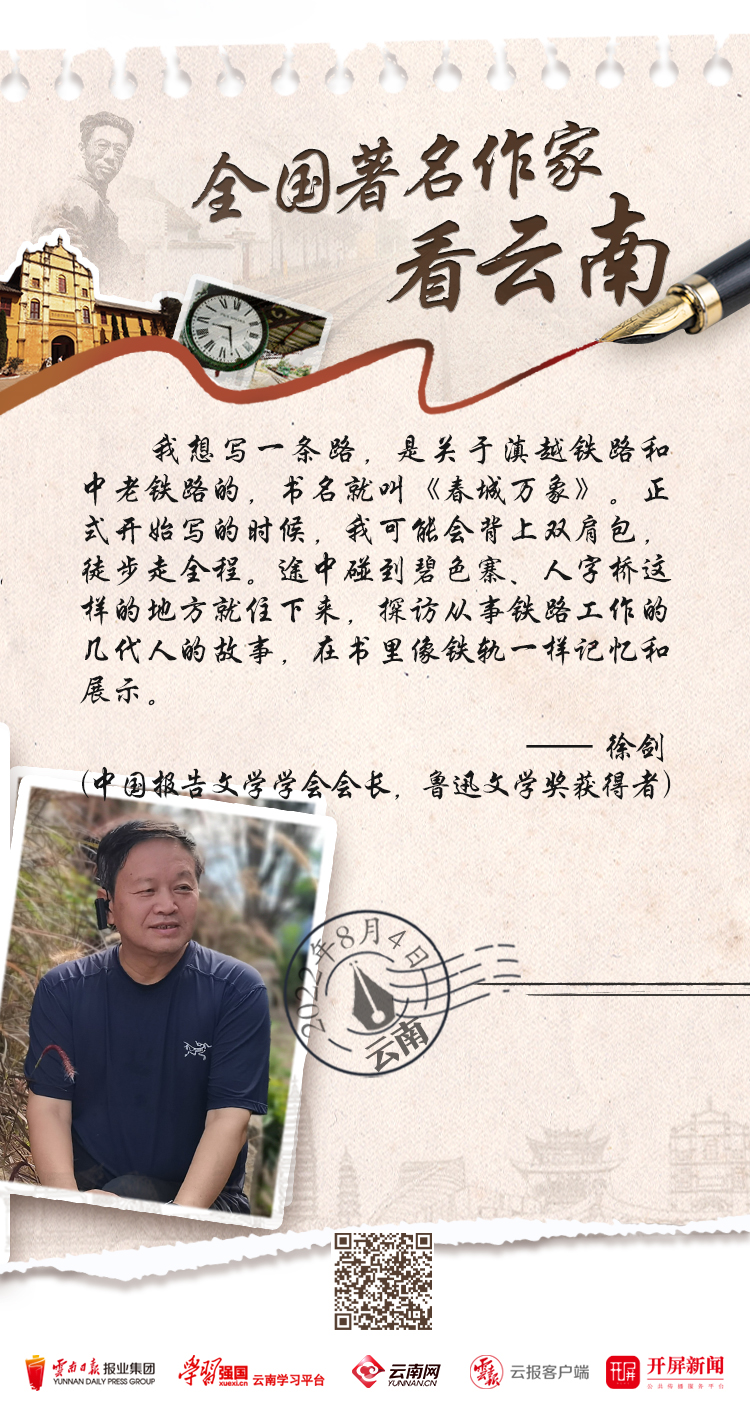 全国著名作家
看云南
我想写一条路，是关于滇越铁路和
中老铁路的，书名就叫《春城万象》。正
式开始写的时候，我可能会背上双肩包，
徒步走全程。途中碰到碧色寨、人字桥这
样的地方就住下来，探访从事铁路工作的
几代人的故事，在书里像铁轨一样记忆和
展示。
—— 徐剑
(中国报告文学学会会长，鲁迅文学奖获得者)
2022年8月4日
云南
雲南日报 报业集团
YUNNAN DAILY PRESS GROUP
学习强国
xuexi.cn
云南学习平台
云南网
YUNNAN.CN
雲报
云报客户端
开屏
开屏新闻
公共传播服务平台